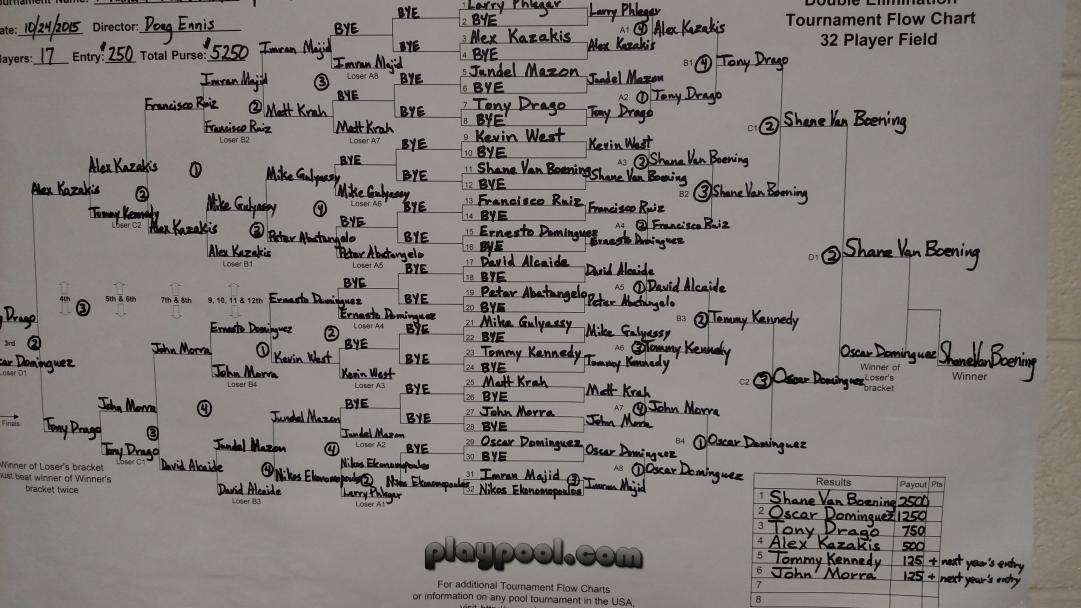 Double Elimination
Tournament Flow Chart
32 Player Field
10/24/2015 Director: Doug Ennis
17 Entry: $250 Total Purse: $5250
1 Larry Phlegar
2 BYE
3 Alex Kazakis
4 BYE
5 Jundel Mazon
6 BYE
7 Tony Drago
8 BYE
9 Kevin West
10 BYE
11 Shane Van Boening
12 BYE
13 Francisco Ruiz
14 BYE
15 Ernesto Dominguez
16 BYE
17 David Alcaide
18 BYE
19 Petar Abatangelo
20 BYE
21 Mike Gulyassy
22 BYE
23 Tommy Kennedy
24 BYE
25 Matt Krah
26 BYE
27 John Morra
28 BYE
29 Oscar Dominguez
30 BYE
31 Imran Majid
32 Nikos Ekonomopoulos
Larry Phlegar
Alex Kazakis
Jundel Mazon
Tony Drago
Kevin West
Shane Van Boening
Francisco Ruiz
Ernesto Dominguez
David Alcaide
Petar Abatangelo
Mike Gulyassy
Tommy Kennedy
Matt Krah
John Morra
Oscar Dominguez
Imran Majid
3
A1 4 Alex Kazakis
A2 1 Tony Drago
A3 2 Shane Van Boening
A4 2 Francisco Ruiz
A5 1 David Alcaide
A6 3 Tommy Kennedy
A7 4 John Morra
A8 1 Oscar Dominguez
B1 4 Tony Drago
B2 3 Shane Van Boening
B3 2 Tommy Kennedy
B4 1 Oscar Dominguez
C1 2 Shane Van Boening
C2 3 Oscar Dominguez
D1 2 Shane Van Boening
Oscar Dominguez
Winner of
Loser's
bracket
Shane Van Boening
Winner
BYE
BYE
BYE
BYE
BYE
BYE
BYE
BYE
BYE
Imran Majid
Loser A8
BYE
Matt Krah
Loser A7
BYE
Mike Gulyassy
Loser A6
BYE
Petar Abatangelo
Loser A5
BYE
Ernesto Dominguez
Loser A4
BYE
Kevin West
Loser A3
BYE
Jundel Mazon
Loser A2
Nikos Ekonomopoulos
Larry Phlegar
Loser A1
2 Nikos Ekonomopoulos
Imran Majid
3
Matt Krah
Mike Gulyassy
4
Petar Abatangelo
Ernesto Dominguez
2
Kevin West
Jundel Mazon
4
Nikos Ekonomopoulos
Imran Majid
2
Francisco Ruiz
Loser B2
Mike Gulyassy
2
Alex Kazakis
Loser B1
Ernesto Dominguez
1
John Morra
Loser B4
Jundel Mazon
4
David Alcaide
Loser B3
Francisco Ruiz
1
Alex Kazakis
John Morra
4
David Alcaide
Alex Kazakis
2
Tommy Kennedy
Loser C2
John Morra
3
Tony Drago
Loser C1
Alex Kazakis
4th 5th & 6th 7th & 8th 9, 10, 11 & 12th
3
Tony Drago
Drago
3rd 2
Dominguez
Loser D1
Finals
Winner of Loser's bracket
must beat winner of Winner's
bracket twice
playpool.com
For additional Tournament Flow Charts
or information on any pool tournament in the USA,
Results Payout Pts
1 Shane Van Boening 2500
2 Oscar Dominguez 1250
3 Tony Drago 750
4 Alex Kazakis 500
5 Tommy Kennedy 125 + next year's entry
6 John Morra 125 + next year's entry
7
8